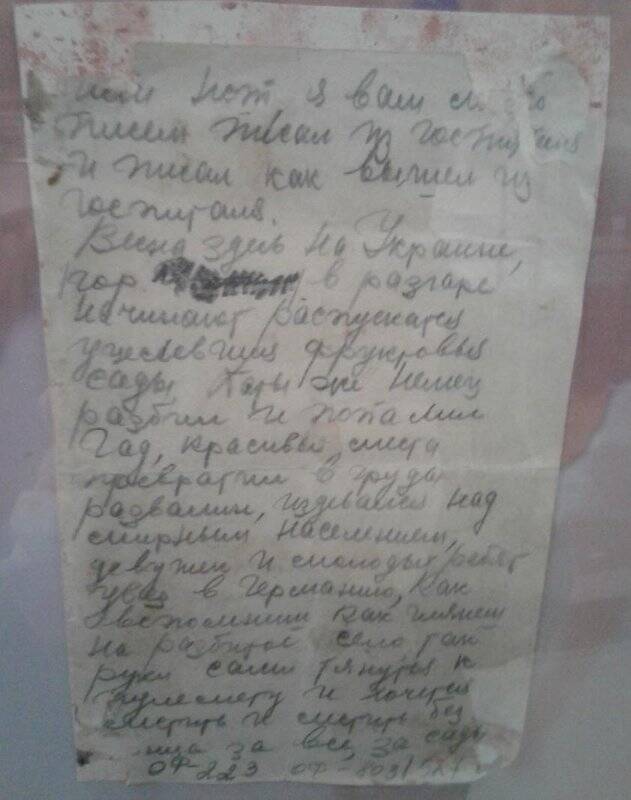 или нот, я вам много
писем писал из госпиталя
и писал как вышел из
госпиталя.
Весна здесь на Украине,
гор в разгаре
начинают распускатся
уцелевшия фруктовыя
сады,
разбил и попалил
Гад, красивыя места
превратил в груды
развалин, издевался над
смирным населением,
девушек и молодых ребят
угнал в Германию, как
вспомниш как глянеш
на разбитое село так
руки сами тянутся к
пулемету и хочется
мстить и мстить без
за все, за сады
ОФ-223 ОФ-803/